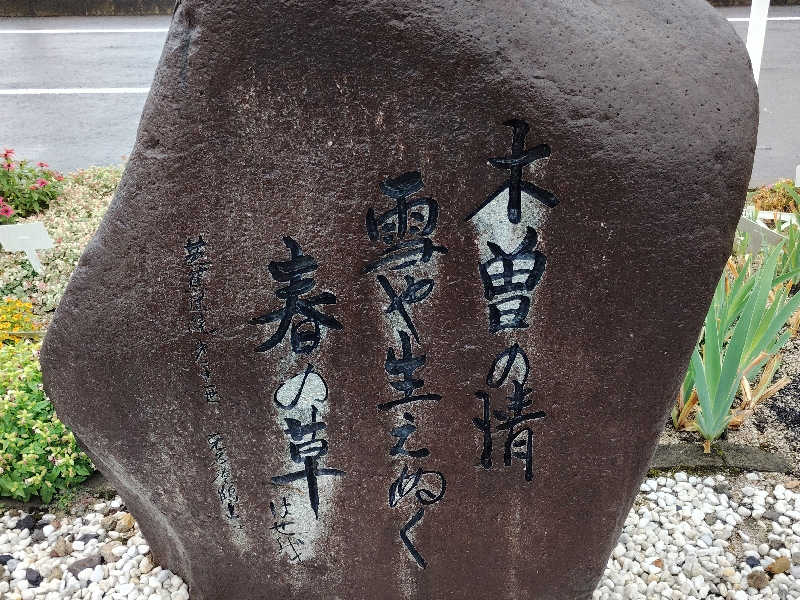 木曽の情
雪や生えぬく
春の草
はせを